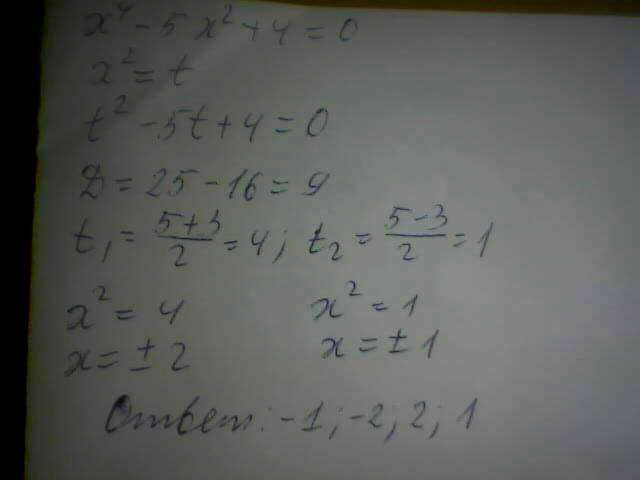 x⁴ - 5x² + 4 = 0
x² = t
t² - 5t + 4 = 0
D = 25 - 16 = 9
t₁ = (5+3)/2 = 4; t₂ = (5-3)/2 = 1
x² = 4 x² = 1
x = ± 2 x = ± 1
Ответ: -1; -2; 2; 1